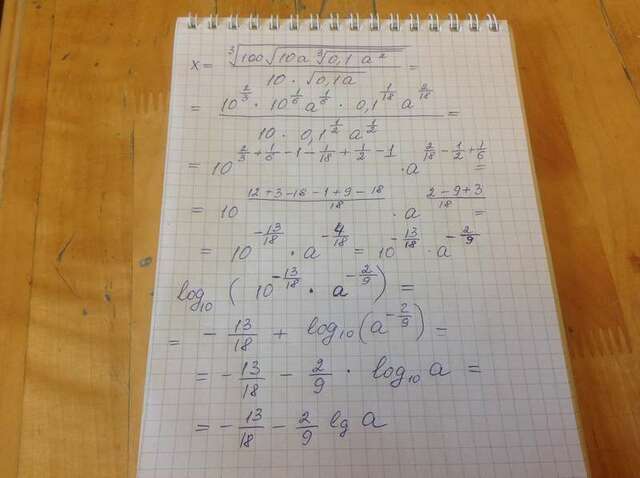 x = \frac{\sqrt[3]{100\sqrt{10a\sqrt[3]{0,1 a^2}}}}{10 \cdot \sqrt{0,1a}} =
= \frac{10^{\frac{2}{3}} \cdot 10^{\frac{1}{6}} a^{\frac{1}{6}} \cdot 0,1^{\frac{1}{18}} a^{\frac{2}{18}}}{10 \cdot 0,1^{\frac{1}{2}} a^{\frac{1}{2}}} =
= 10^{\frac{2}{3}+\frac{1}{6}-1-\frac{1}{18}+\frac{1}{2}-1} \cdot a^{\frac{2}{18}-\frac{1}{2}+\frac{1}{6}} =
= 10^{\frac{12+3-18-1+9-18}{18}} \cdot a^{\frac{2-9+3}{18}} =
= 10^{-\frac{13}{18}} \cdot a^{-\frac{4}{18}} = 10^{-\frac{13}{18}} \cdot a^{-\frac{2}{9}}
log_{10} (10^{-\frac{13}{18}} \cdot a^{-\frac{2}{9}}) =
= -\frac{13}{18} + log_{10}(a^{-\frac{2}{9}}) =
= -\frac{13}{18} - \frac{2}{9} \cdot log_{10} a =
= -\frac{13}{18} - \frac{2}{9} lg a